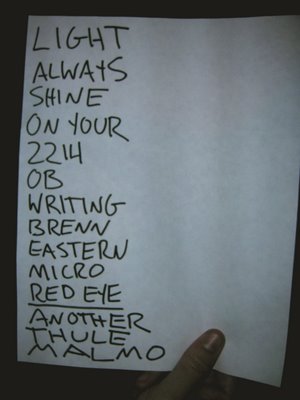 LIGHT
ALWAYS
SHINE
ON YOUR
2214
OB
WRITING
BRENN
EASTERN
MICRO
RED EYE
ANOTHER
THULE
MALMO